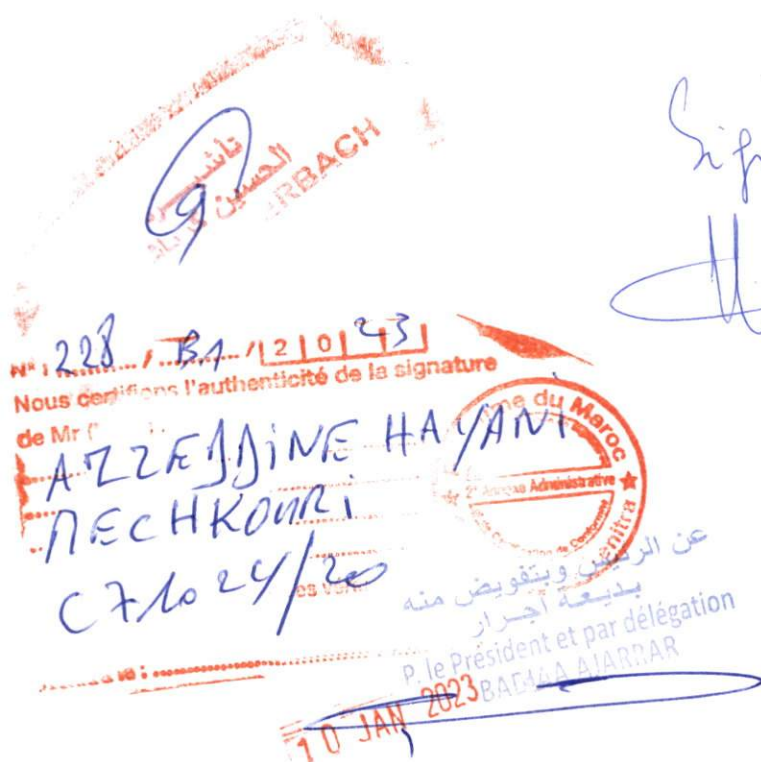 تأشيرة
الحسين
RBACH
N° : 228 / BA / 2023
Nous certifions l'authenticité de la signature
de Mr
AZZEDDINE HAYANI
MECHKOURI
C71024/20
me du Maroc
2e Annexe Administrative
Kénitra
عن الرئيس وبتفويض منه
بديعة اجرار
P. le Président et par délégation
BADIAA AJARRAR
10 JAN 2023